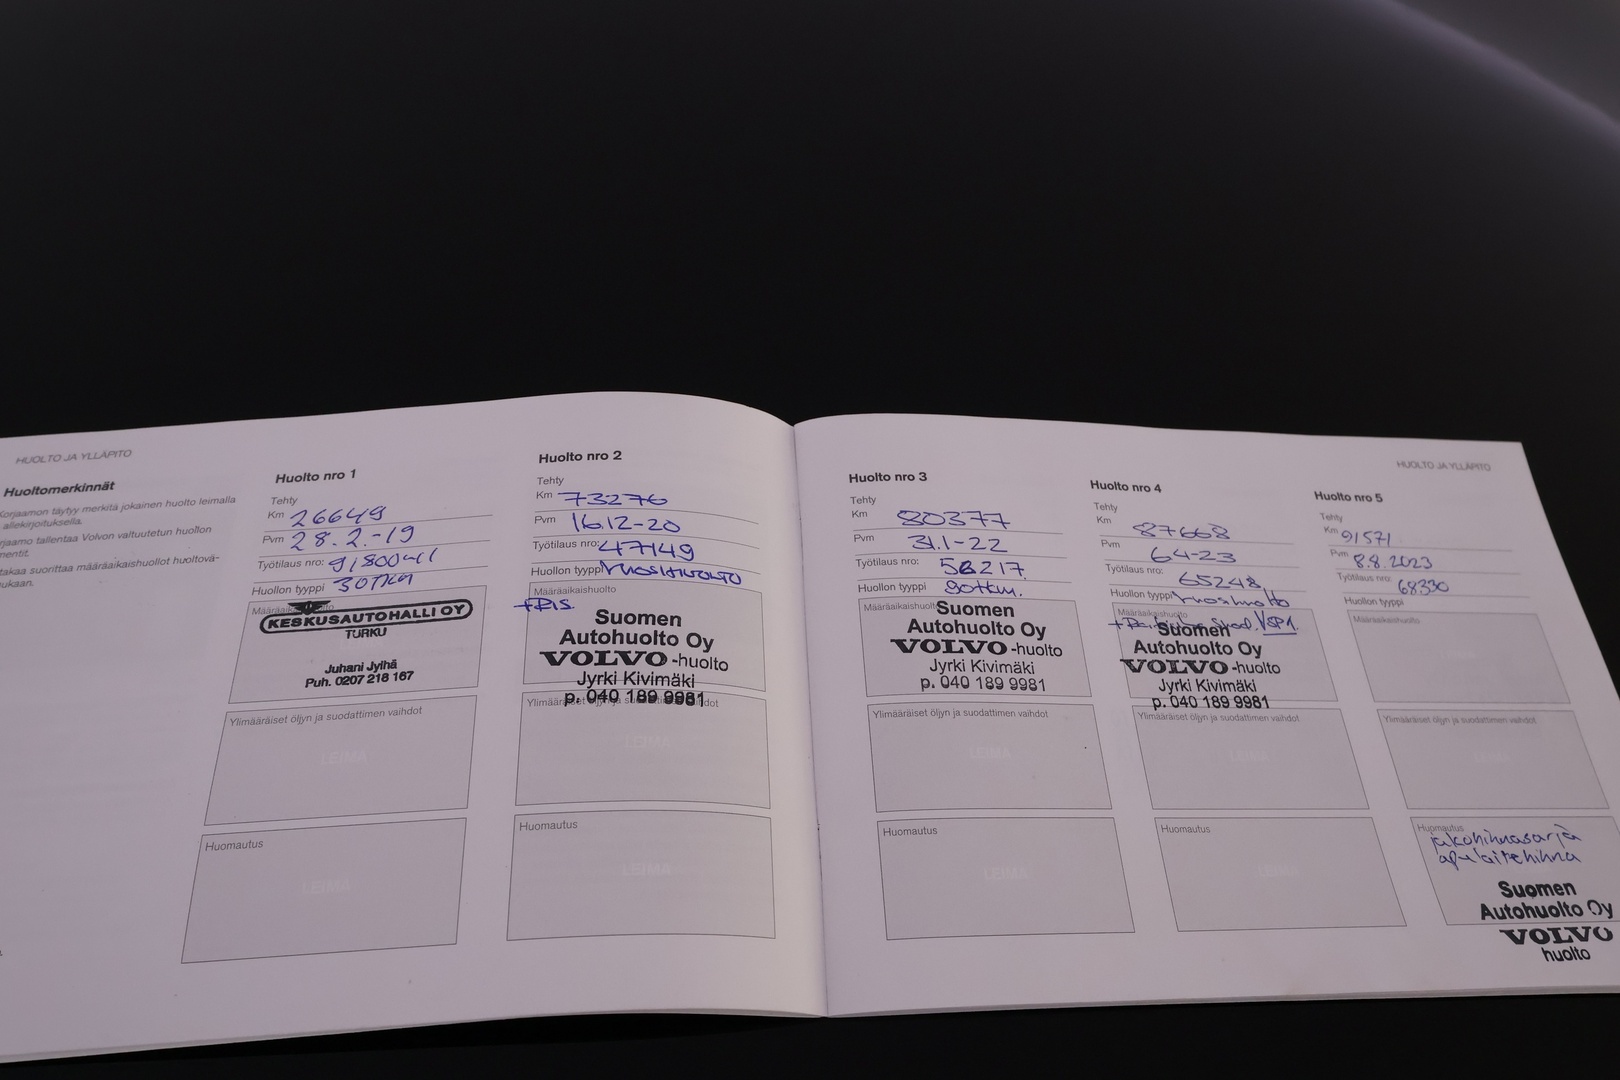 HUOLTO JA YLLÄPITO
Huoltomerkinnät
Korjaamon täytyy merkitä jokainen huolto leimalla
allekirjoituksella.
tallentaa Volvon valtuutetun huollon
suorittaa määräaikaishuollot
mukaan.
Huolto nro 1
Tehty
Km 26649
Pvm 28.2.-19
Työtilaus nro:
Huollon tyyppi 30TKM
Määräaikaishuolto
KESKUSAUTOHALLI OY
TURKU
Juhani Jylhä
Puh. 0207 218 167
Ylimääräiset öljyn ja suodattimen vaihdot
LEIMA
Huomautus
LEIMA
Huolto nro 2
Tehty
Km 73276
Pvm 16.12-20
Työtilaus nro: 47149
Huollon tyyppi Vuosihuolto
Määräaikaishuolto
Suomen
Autohuolto Oy
VOLVO -huolto
Jyrki Kivimäki
p. 040 189 9981
Ylimääräiset öljyn ja suodattimen vaihdot
LEIMA
Huomautus
LEIMA
HUOLTO JA YLLÄPITO
Huolto nro 3
Tehty
Km 80377
Pvm 31.1-22
Työtilaus nro: 56217
Huollon tyyppi 90tkm.
Määräaikaishuolto
Suomen
Autohuolto Oy
VOLVO -huolto
Jyrki Kivimäki
p. 040 189 9981
Ylimääräiset öljyn ja suodattimen vaihdot
LEIMA
Huomautus
LEIMA
Huolto nro 4
Tehty
Km 87668
Pvm 6.4-23
Työtilaus nro: 65248
Huollon tyyppi Vuosihuolto
Määräaikaishuolto
Suomen
Autohuolto Oy
VOLVO -huolto
Jyrki Kivimäki
p. 040 189 9981
Ylimääräiset öljyn ja suodattimen vaihdot
LEIMA
Huomautus
Huolto nro 5
Tehty
Km 91571
Pvm 8.8.2023
Työtilaus nro: 68330
Huollon tyyppi
Määräaikaishuolto
Ylimääräiset öljyn ja suodattimen vaihdot
Huomautus
jakohihnasarja
apulaitehihna
Suomen
Autohuolto Oy
VOLVO
huolto